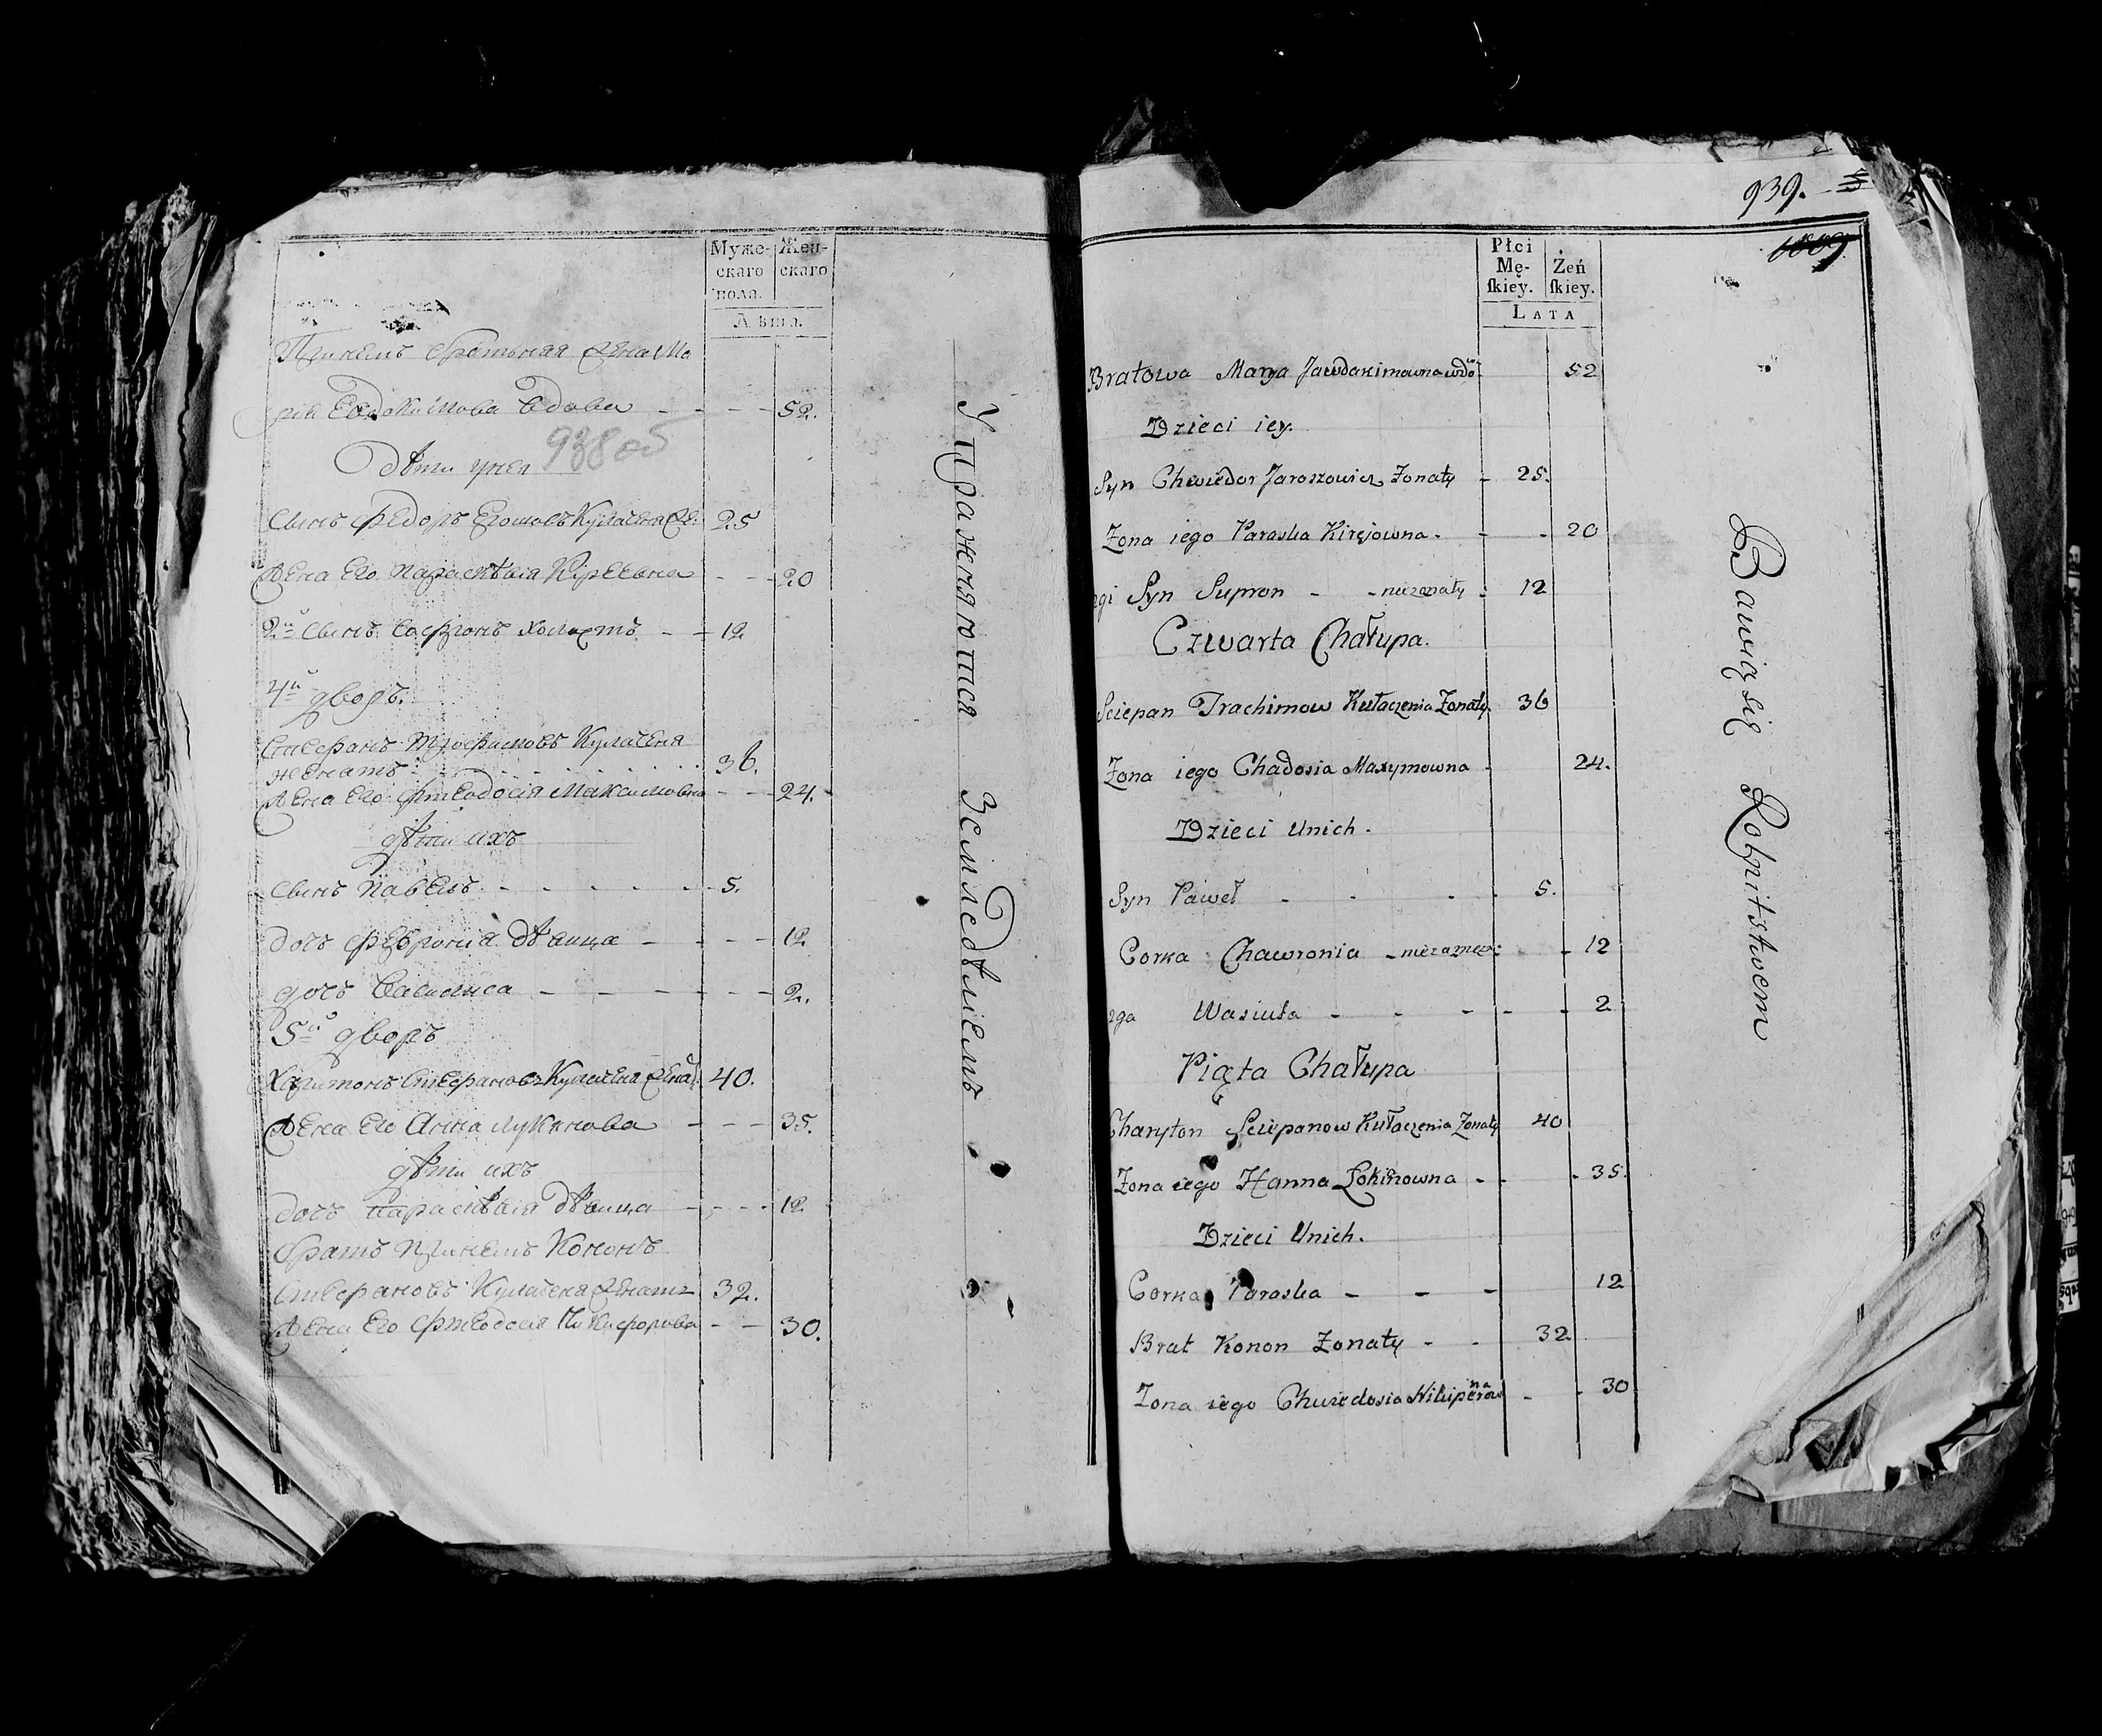 Муже-
скаго
пола.
Жен-
скаго
Лѣта.
При немъ братьняя жена Ма
рія Евдокимова вдова - - - 52.
938 об
Дѣти у нея
Сынъ Федоръ Егошовъ Кулаченя же: 25
Жена его Параскѣвія Кіреевна - - - 20
2й Сынъ Сафронъ холостъ - - 12
4й дворъ.
Стефанъ Трофимовъ Кулаченя
женатъ 36.
Жена его Фтеодосія Максимовна - - 24.
дѣти ихъ
Сынъ Павелъ - - - - - 5.
дочь Феврония дѣвица - - - - 12
дочь Василиса - - - - - - 2.
5й дворъ
Харитонъ Стефановъ Кулаченя жена: 40.
Жена его Анна Лукинова - - - 35.
дѣти ихъ
дочь Параскѣвія дѣвица - - - - 12
братъ при немъ Кононъ
Стефановъ Кулаченя женатъ 32.
Жена его Фтеодосия Никифорова - - 30.
Упражняются Земледѣліемъ
939.
1809
Płci
Mę-
ſkiey.
Żeń
ſkiey.
LATA
Bratowa Marya Jawdakimowna wdo: 52
Dzieci iey.
Syn Chwiedor Jaroszowicz Żonaty - 25.
Żona iego Paraska Kirejowna. - - 20
Syn Supron - - nieżonaty - 12
Czwarta Chałupa.
Sciepan Trachimow Kułaczenia Żonaty. 36
Żona iego Chadosia Maxymowna - 24.
Dzieci Unich.
Syn Paweł - - - - 5.
Corka Chawronia - niezamęż: - 12
Wasiuta - - - - - 2
Piąta Chałupa
Charyton Sciepanow Kułaczenia Żonaty 40
Żona iego Hanna Łokinowna - - - 35.
Dzieci Unich.
Corka Paraska - - - 12
Brat Konon Żonaty - - 32
Żona iego Chwiedosia Nikiperowna - - 30
Bawią się Rolnitstwem